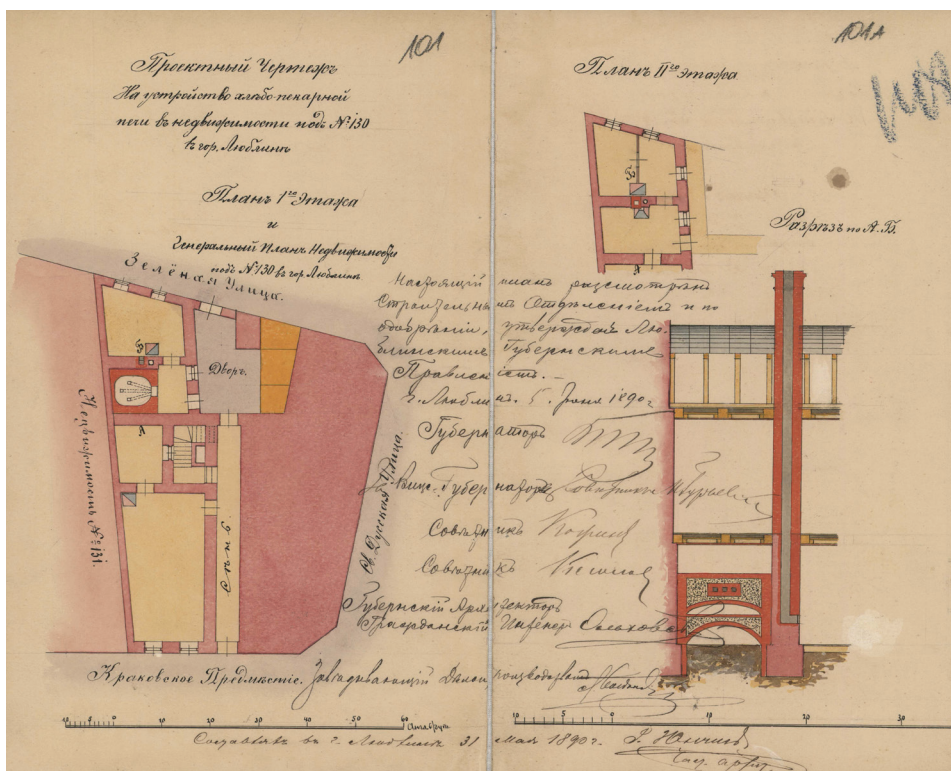 101
101А
Проектный Чертежъ
На устройство хлѣбо-пекарной
печи въ недвижимости подъ №130
въ гор. Люблинѣ
Планъ 1го Этажа
и
Генеральный Планъ Недвижимости
подъ №130 въ гор. Люблинѣ
Планъ IIго этажа
Б
А
Разрѣзъ по А.Б.
Зелёная Улица.
Дворъ.
Б
А
Недвижимость № 131.
Сѣнь
Св. Дусская Улица.
Краковское Предмѣстіе.
Настоящій планъ разсмотрѣнъ
Строительнымъ Отдѣленіемъ и по
одобреніи, утвержденъ Лю-
блинскимъ Губернскимъ
Правленіемъ.
г. Люблинъ. 5. Іюня 1890 г.
Губернаторъ
Вице-Губернаторъ
Совѣтникъ
Совѣтникъ
Губернскій Архитекторъ
Гражданскій Инженеръ
Завѣдывающій Дѣлопроизводствомъ
10 5 0 10 20 30 40 50 60
10 5 0 10 20 30
Составлъ въ г. Люблинѣ 31 мая 1890 г.